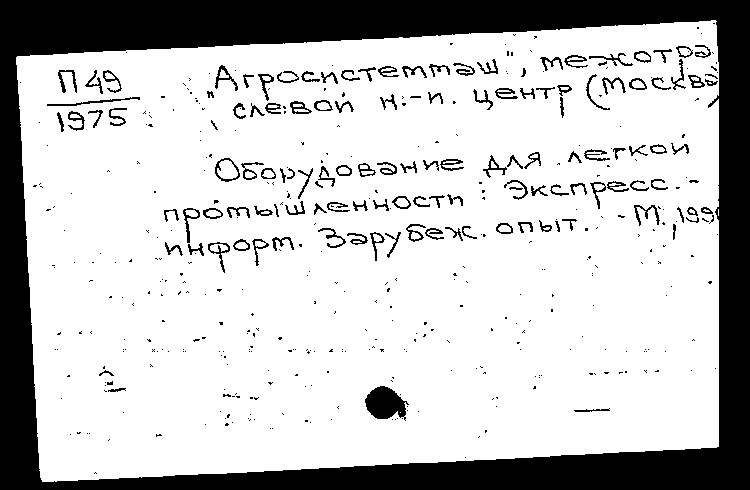 П 49
1975
"Агросистеммаш", межотра
слевой н.-и. центр (Москва)
Оборудование для легкой
промышленности : Экспресс.-
информ. Зарубеж. опыт. - М., 199